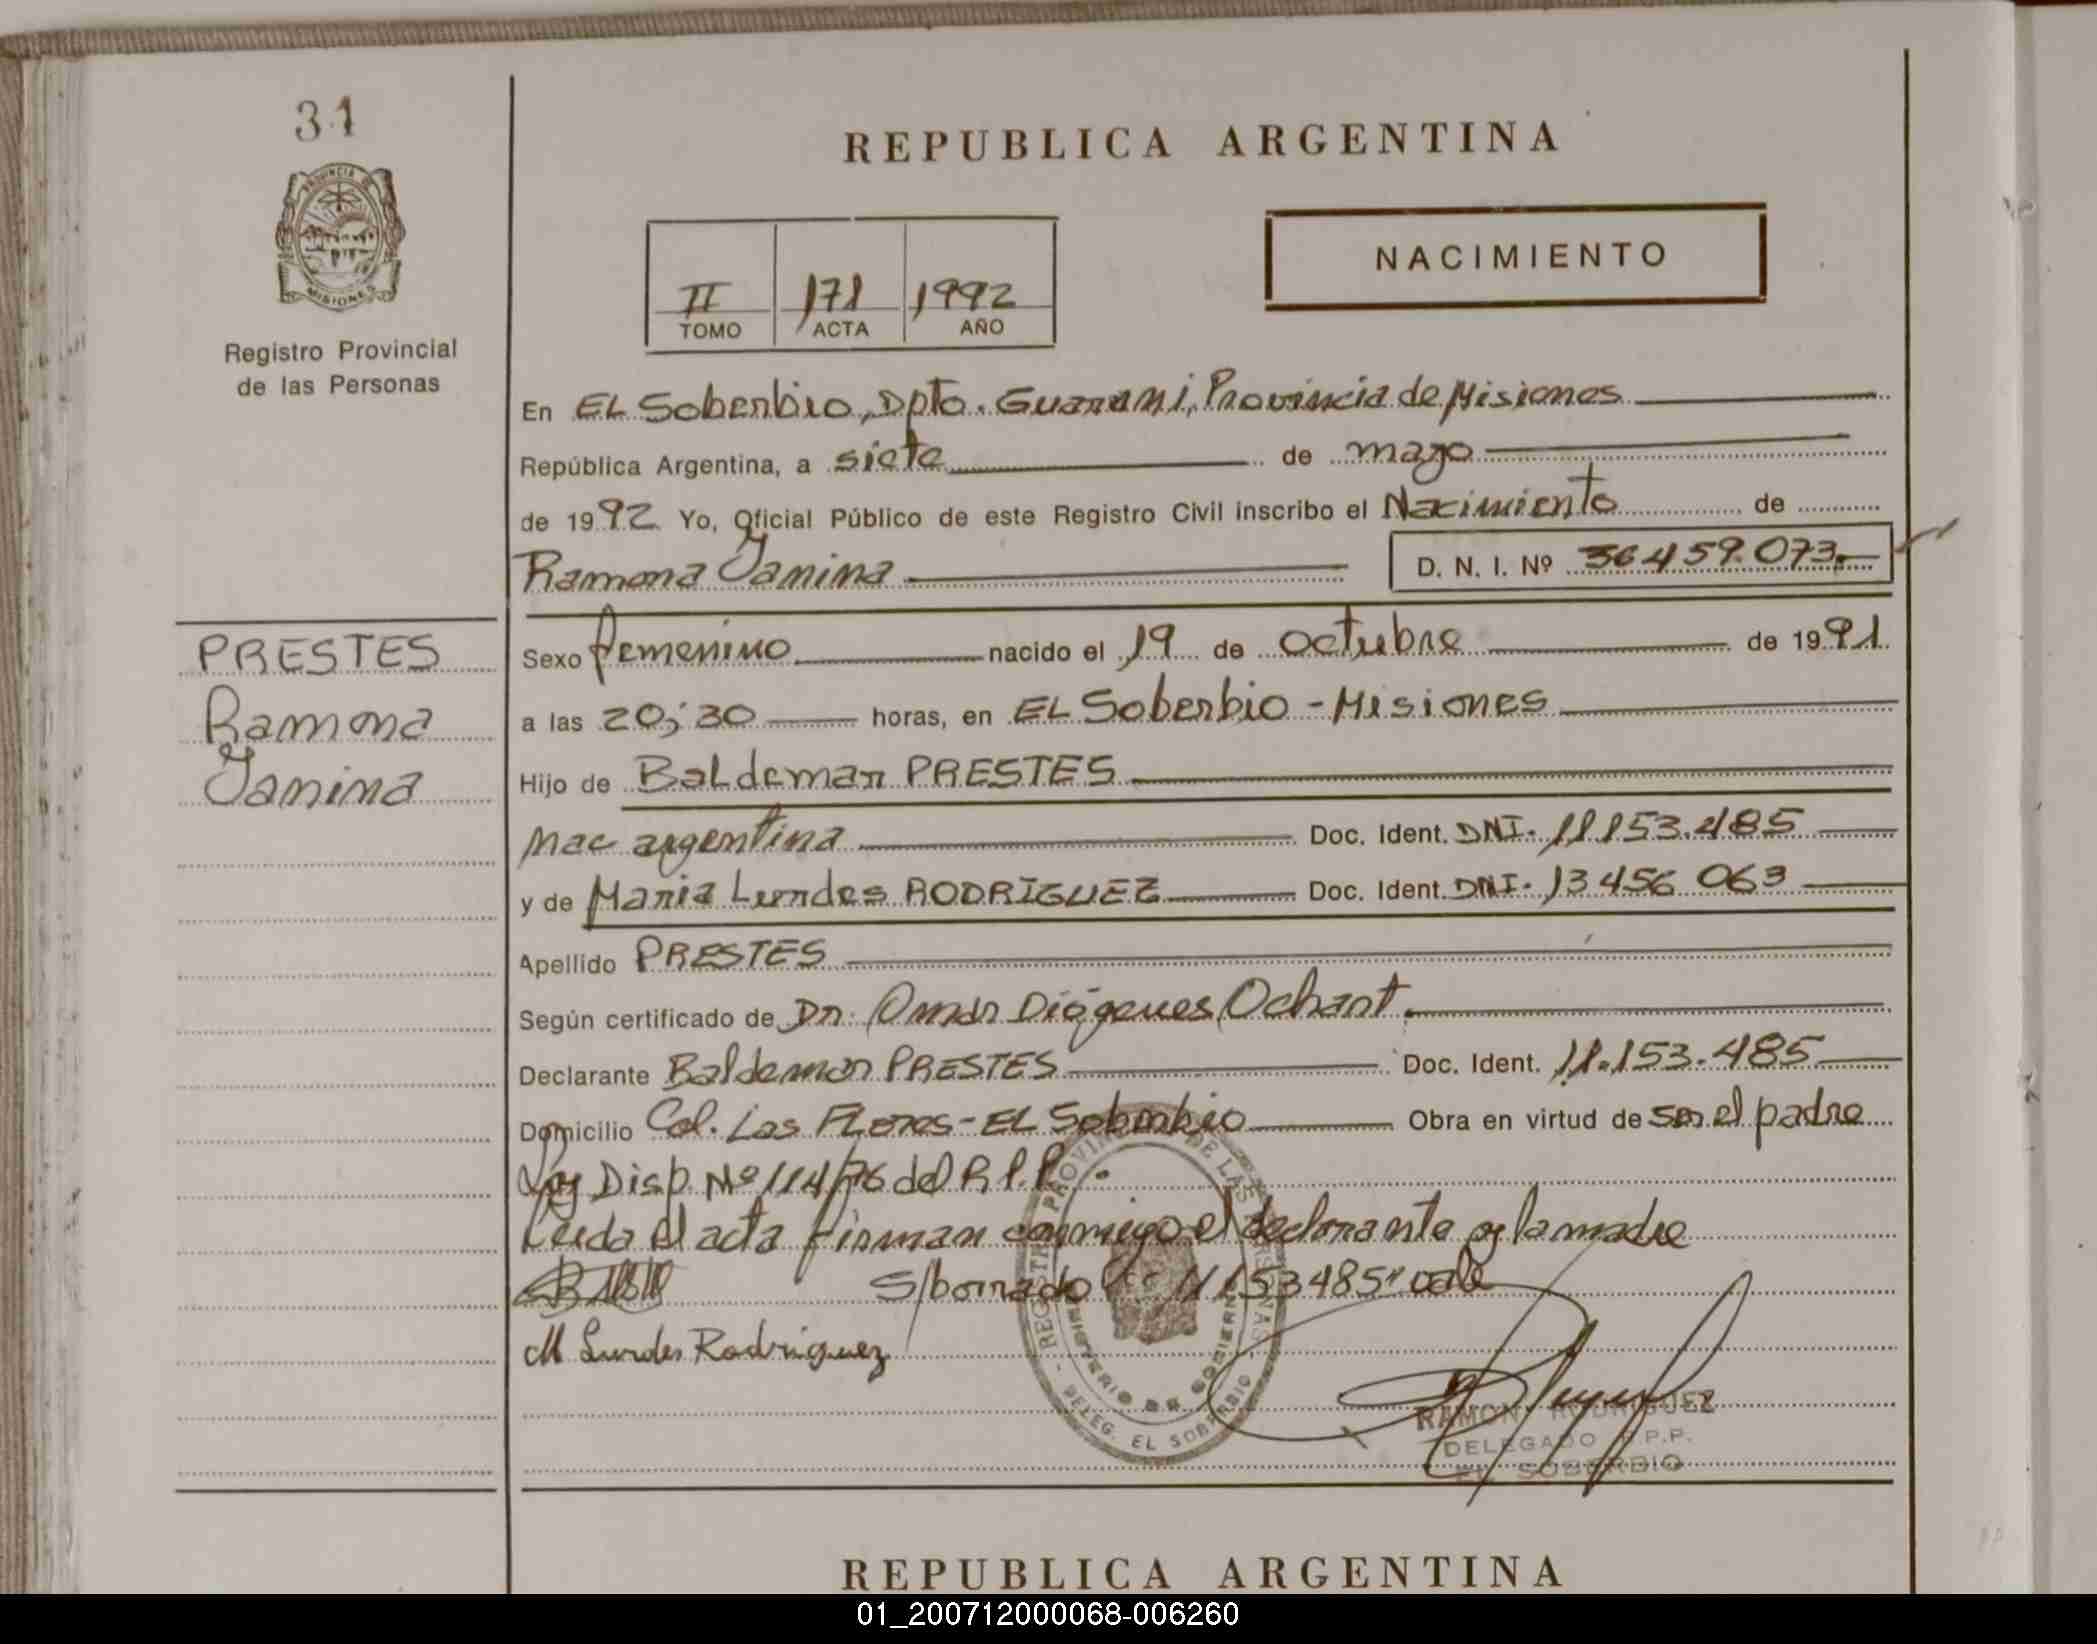 31
PROVINCIA DE
MISIONES
Registro Provincial
de las Personas
REPUBLICA ARGENTINA
NACIMIENTO
II 171 1992
TOMO ACTA AÑO
En EL Soberbio, Dpto. Guarani, Provincia de Misiones
República Argentina, a siete de mayo
de 1992 Yo, Oficial Público de este Registro Civil inscribo el Nacimiento de
Ramona Yanina D. N. I. Nº 36459.073.
PRESTES
Ramona
Yanina
Sexo femenino nacido el 19 de octubre de 1991.
a las 20;30 horas, en EL Soberbio - Misiones
Hijo de Baldemar PRESTES
nac argentina Doc. Ident. DNI. 11153.485
y de Maria Lurdes RODRIGUEZ Doc. Ident. DNI. 13456 063
Apellido PRESTES
Según certificado de Dr. Omar Diógenes Ochart.
Declarante Baldemar PRESTES Doc. Ident. 11.153.485
Domicilio Col. Las Flores - EL Soberbio Obra en virtud de ser el padre
y Disp. Nº 114/76 del R.P.P.
Leida el acta firman conmigo el declarante y la madre
S/borrado "11153485" vale
M Lurdes Rodriguez
REGISTRO PROVINCIAL DE LAS PERSONAS
MINISTERIO DE GOBIERNO
DELEG. EL SOBERBIO
RAMON RODRIGUEZ
DELEGADO R.P.P.
EL SOBERBIO
REPUBLICA ARGENTINA
01_200712000068-006260